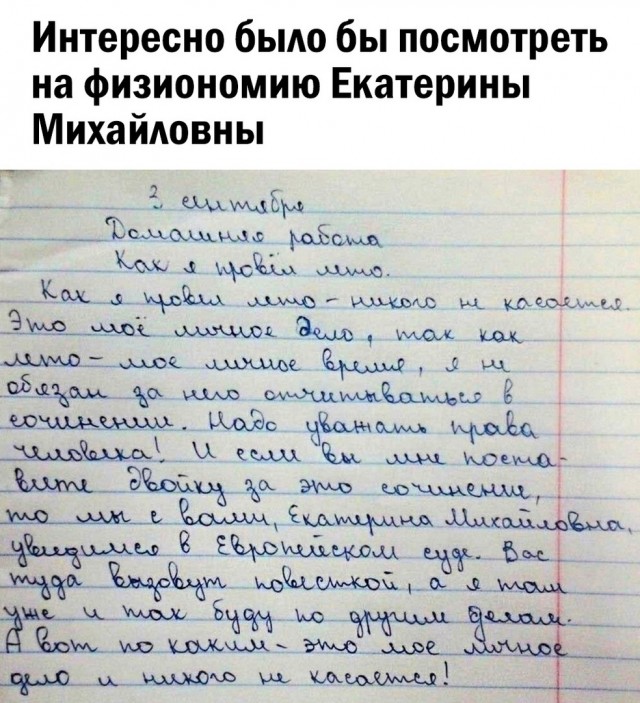 Интересно было бы посмотреть
на физиономию Екатерины
Михайловны
3 сентября
Домашняя работа
Как я провёл лето.
Как я провёл лето – никого не касается.
Это моё личное дело, так как
лето – мое личное время, я не
обязан за него отчитываться в
сочинении. Надо уважать права
человека! И если вы мне поста-
вите двойку за это сочинение,
то мы с вами, Екатерина Михайловна,
увидимся в Европейском суде. Вас
туда вызовут повесткой, а я там
уже и так буду по другим делам.
А вот по каким – это мое личное
дело и никого не касается!